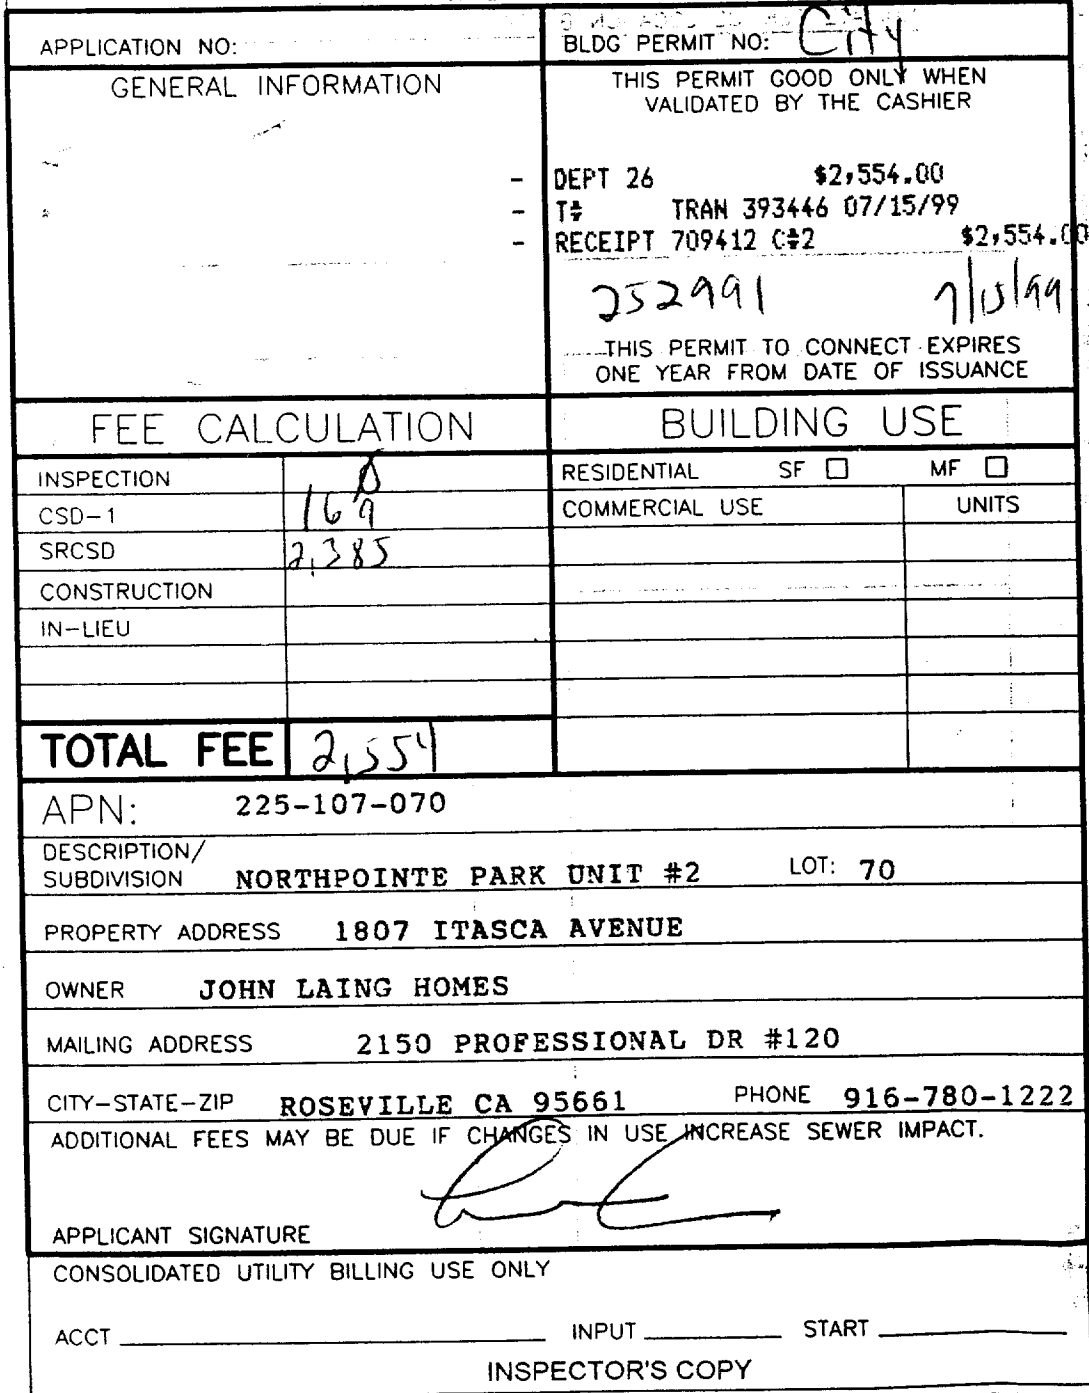 APPLICATION NO:
BLDG PERMIT NO: City
GENERAL INFORMATION
THIS PERMIT GOOD ONLY WHEN
VALIDATED BY THE CASHIER
- DEPT 26 $2,554.00
- T# TRAN 393446 07/15/99
- RECEIPT 709412 C#2 $2,554.00
252991 7/15/99
THIS PERMIT TO CONNECT EXPIRES
ONE YEAR FROM DATE OF ISSUANCE
FEE CALCULATION
INSPECTION
CSD-1 169
SRCSD 2,385
CONSTRUCTION
IN-LIEU
TOTAL FEE 2,554
BUILDING USE
RESIDENTIAL SF ☐ MF ☐
COMMERCIAL USE UNITS
APN: 225-107-070
DESCRIPTION/
SUBDIVISION NORTHPOINTE PARK UNIT #2 LOT: 70
PROPERTY ADDRESS 1807 ITASCA AVENUE
OWNER JOHN LAING HOMES
MAILING ADDRESS 2150 PROFESSIONAL DR #120
CITY-STATE-ZIP ROSEVILLE CA 95661 PHONE 916-780-1222
ADDITIONAL FEES MAY BE DUE IF CHANGES IN USE INCREASE SEWER IMPACT.
APPLICANT SIGNATURE
CONSOLIDATED UTILITY BILLING USE ONLY
ACCT INPUT START
INSPECTOR'S COPY